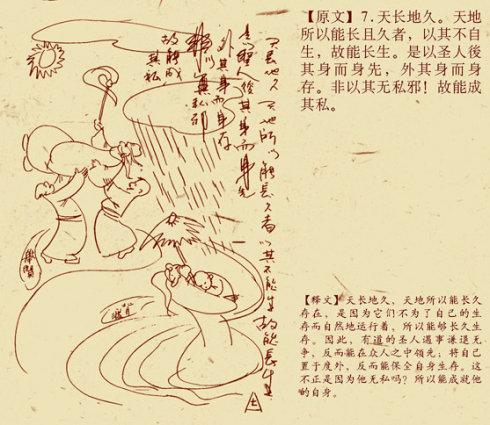 【原文】7.天长地久。天地
所以能长且久者，以其不自
生，故能长生。是以圣人後
其身而身先，外其身而身
存。非以其无私邪！故能成
其私。
天長地久 天地所以能長久者以其不能生故能長生
是以聖人後其身而身先
外其身而身存
非以其無私邪
故能成
其私
七
【释文】天长地久，天地所以能长久
存在，是因为它们不为了自己的生
存而自然地运行着，所以能够长久生
存。因此，有道的圣人遇事谦退无
争，反而能在众人之中领先；将自己
置于度外，反而能保全自身生存。这
不正是因为他无私吗？所以能成就他
的自身。